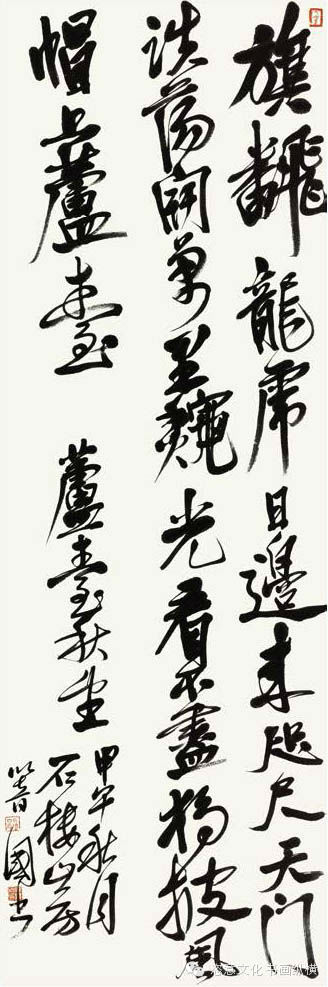 旗翻龍虎日邊來咫尺天门
詄蕩開萬里光看不盡獨披風
帽上蘆臺 蘆臺秋望
甲午秋月
石樓山房
國書
文化 书画纵横